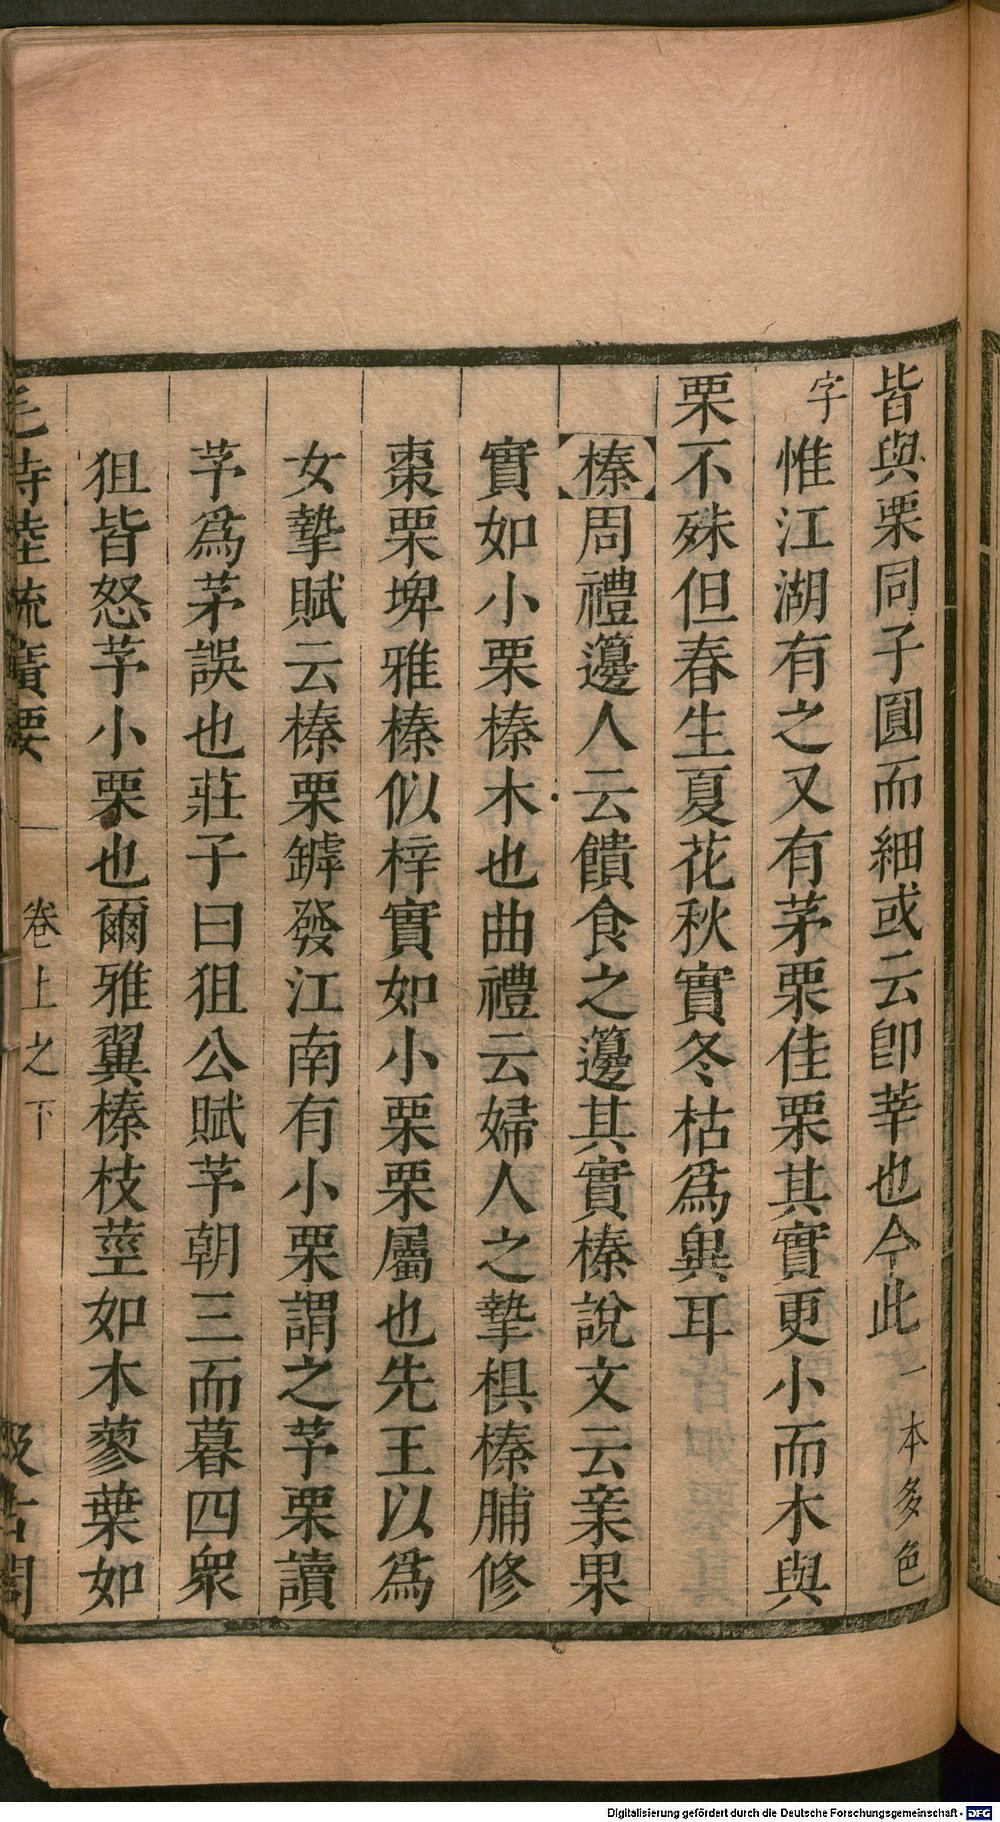 皆與栗同子圓而細或云卽莘也今此一本多色
字惟江湖有之又有茅栗佳栗其實更小而木與
栗不殊但春生夏花秋實冬枯爲異耳
榛周禮籩人云饋食之籩其實榛說文云亲果
實如小栗榛木也曲禮云婦人之摯椇榛脯修
棗栗埤雅榛似梓實如小栗栗屬也先王以爲
女摯賦云榛栗罅發江南有小栗謂之芧栗讀
芧爲茅誤也莊子曰狙公賦芧朝三而暮四衆
狙皆怒芧小栗也爾雅翼榛枝莖如木蓼葉如
毛詩陸疏廣要 卷上之下 汲古閣
Digitalisierung gefördert durch die Deutsche Forschungsgemeinschaft - DFG